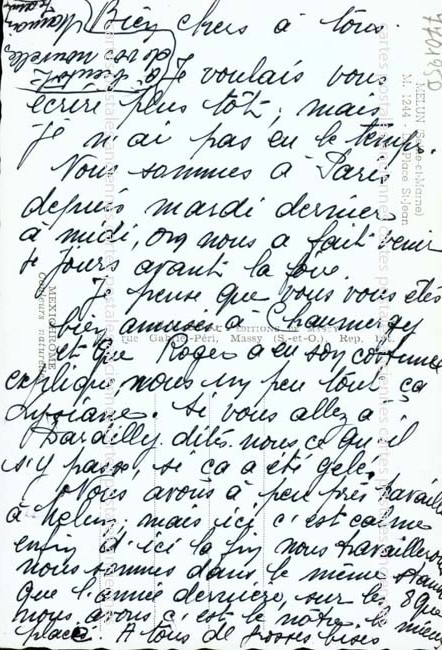 Bien chers à tous.
Je voulais vous
écrire plus tôt, mais
je n'ai pas eu le temps.
Nous sommes à Paris
depuis mardi dernier
à midi, on nous a fait venir
jours avant la foire.
Je pense que vous vous êtes
bien amusés à Chaumergy
et que Roger a eu son costume
expliquez nous un peu tout ça
Lysiane. Si vous allez à
Dardilly dites-nous ce qu'il
s'y passe, si ça a été gelé.
Nous avons à peu près travaillé
à Melun, mais ici c'est calme
enfin d'ici la fin nous travaillerons
nous sommes dans le même stand
que l'année dernière, sur les 8 que
nous avons c'est le nôtre le mieux
placé. A tous de grosses bises
à bientôt
de vos nouvelles
MELUN (S.-et-Marne)
M. 1244 - La Place St-Jean
EDITIONS DE MASSY
rue Gabriel-Péri, Massy (S.-et-O.), Rep. Int.
MEXICHROME
Couleurs naturelles